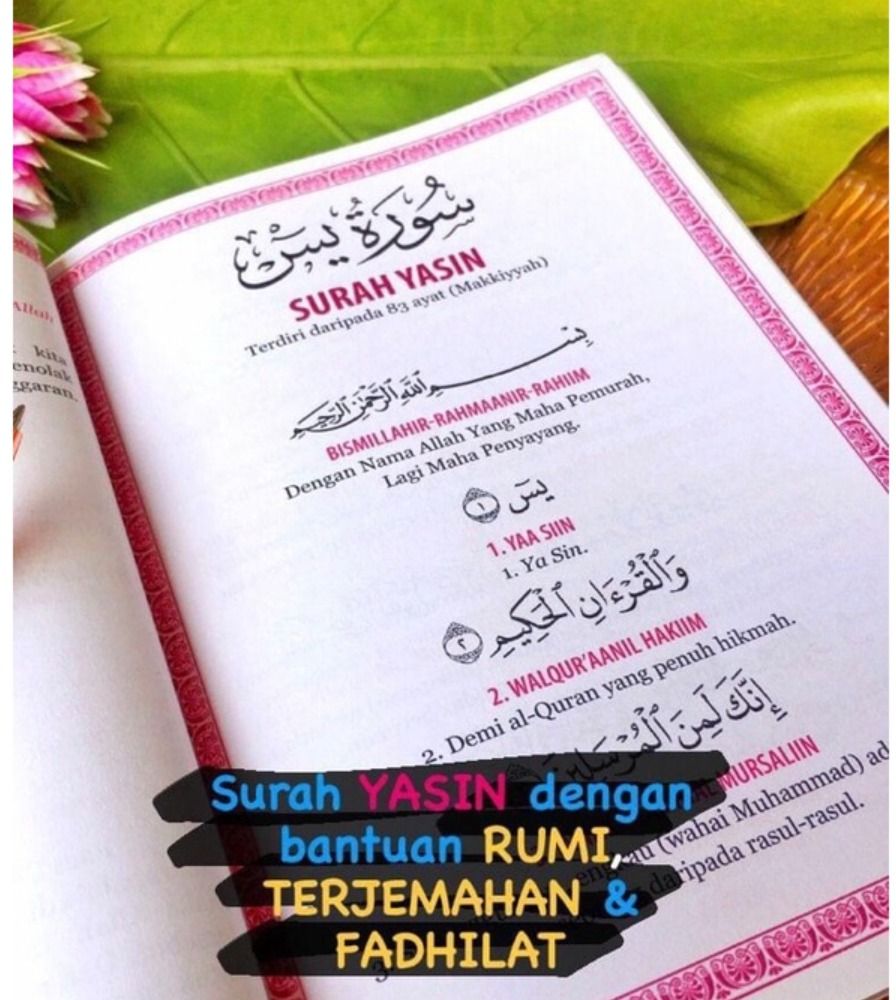 Allah
kita
enolak
ggaran.
سُورَةُ يسٓ
SURAH YASIN
Terdiri daripada 83 ayat (Makkiyyah)
بِسْمِ اللَّهِ الرَّحْمَٰنِ الرَّحِيمِ
BISMILLAHIR-RAHMAANIR-RAHIIM
Dengan Nama Allah Yang Maha Pemurah,
Lagi Maha Penyayang.
يسٓ ١
1. YAA SIIN
1. Ya Sin.
وَالْقُرْءَانِ الْحَكِيمِ ٢
2. WALQUR'AANIL HAKIIM
2. Demi al-Quran yang penuh hikmah.
إِنَّكَ لَمِنَ الْمُرْسَلِينَ
MURSALIIN
(wahai Muhammad) ad
daripada rasul-rasul.
Surah YASIN dengan
bantuan RUMI,
TERJEMAHAN &
FADHILAT